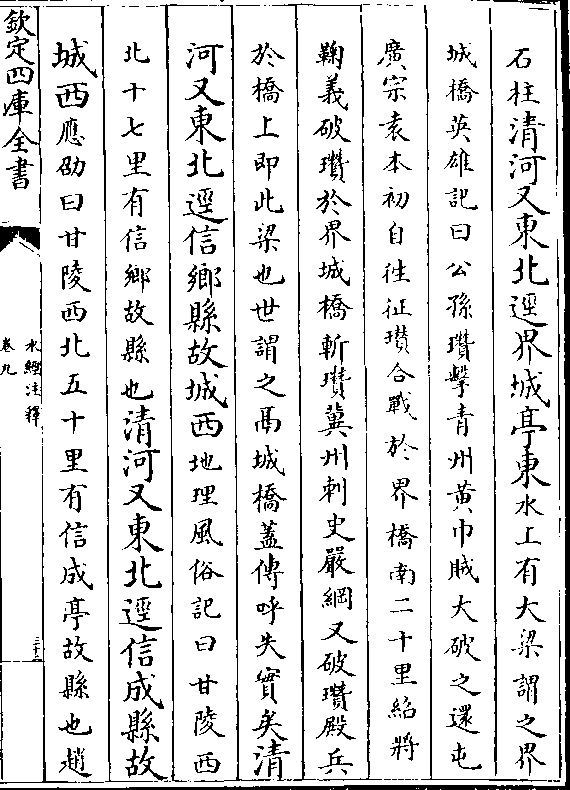 石柱清河又東北逕界城亭東水上有大梁謂之界
城橋英雄記曰公孫瓚擊青州黃巾賊大破之還屯
廣宗袁本初自往征瓚合戰於界橋南二十里紹將
鞠義破瓚於界城橋斬瓚冀州刺史嚴綱又破瓚殿兵
於橋上即此梁也世謂之鬲城橋蓋傳呼失實矣清
河又東北逕信鄉縣故城西地理風俗記曰甘陵西
北十七里有信鄉故縣也清河又東北逕信成縣故
城西應劭曰甘陵西北五十里有信成亭故縣也趙
欽定四庫全書
水經注釋
卷九
三十二